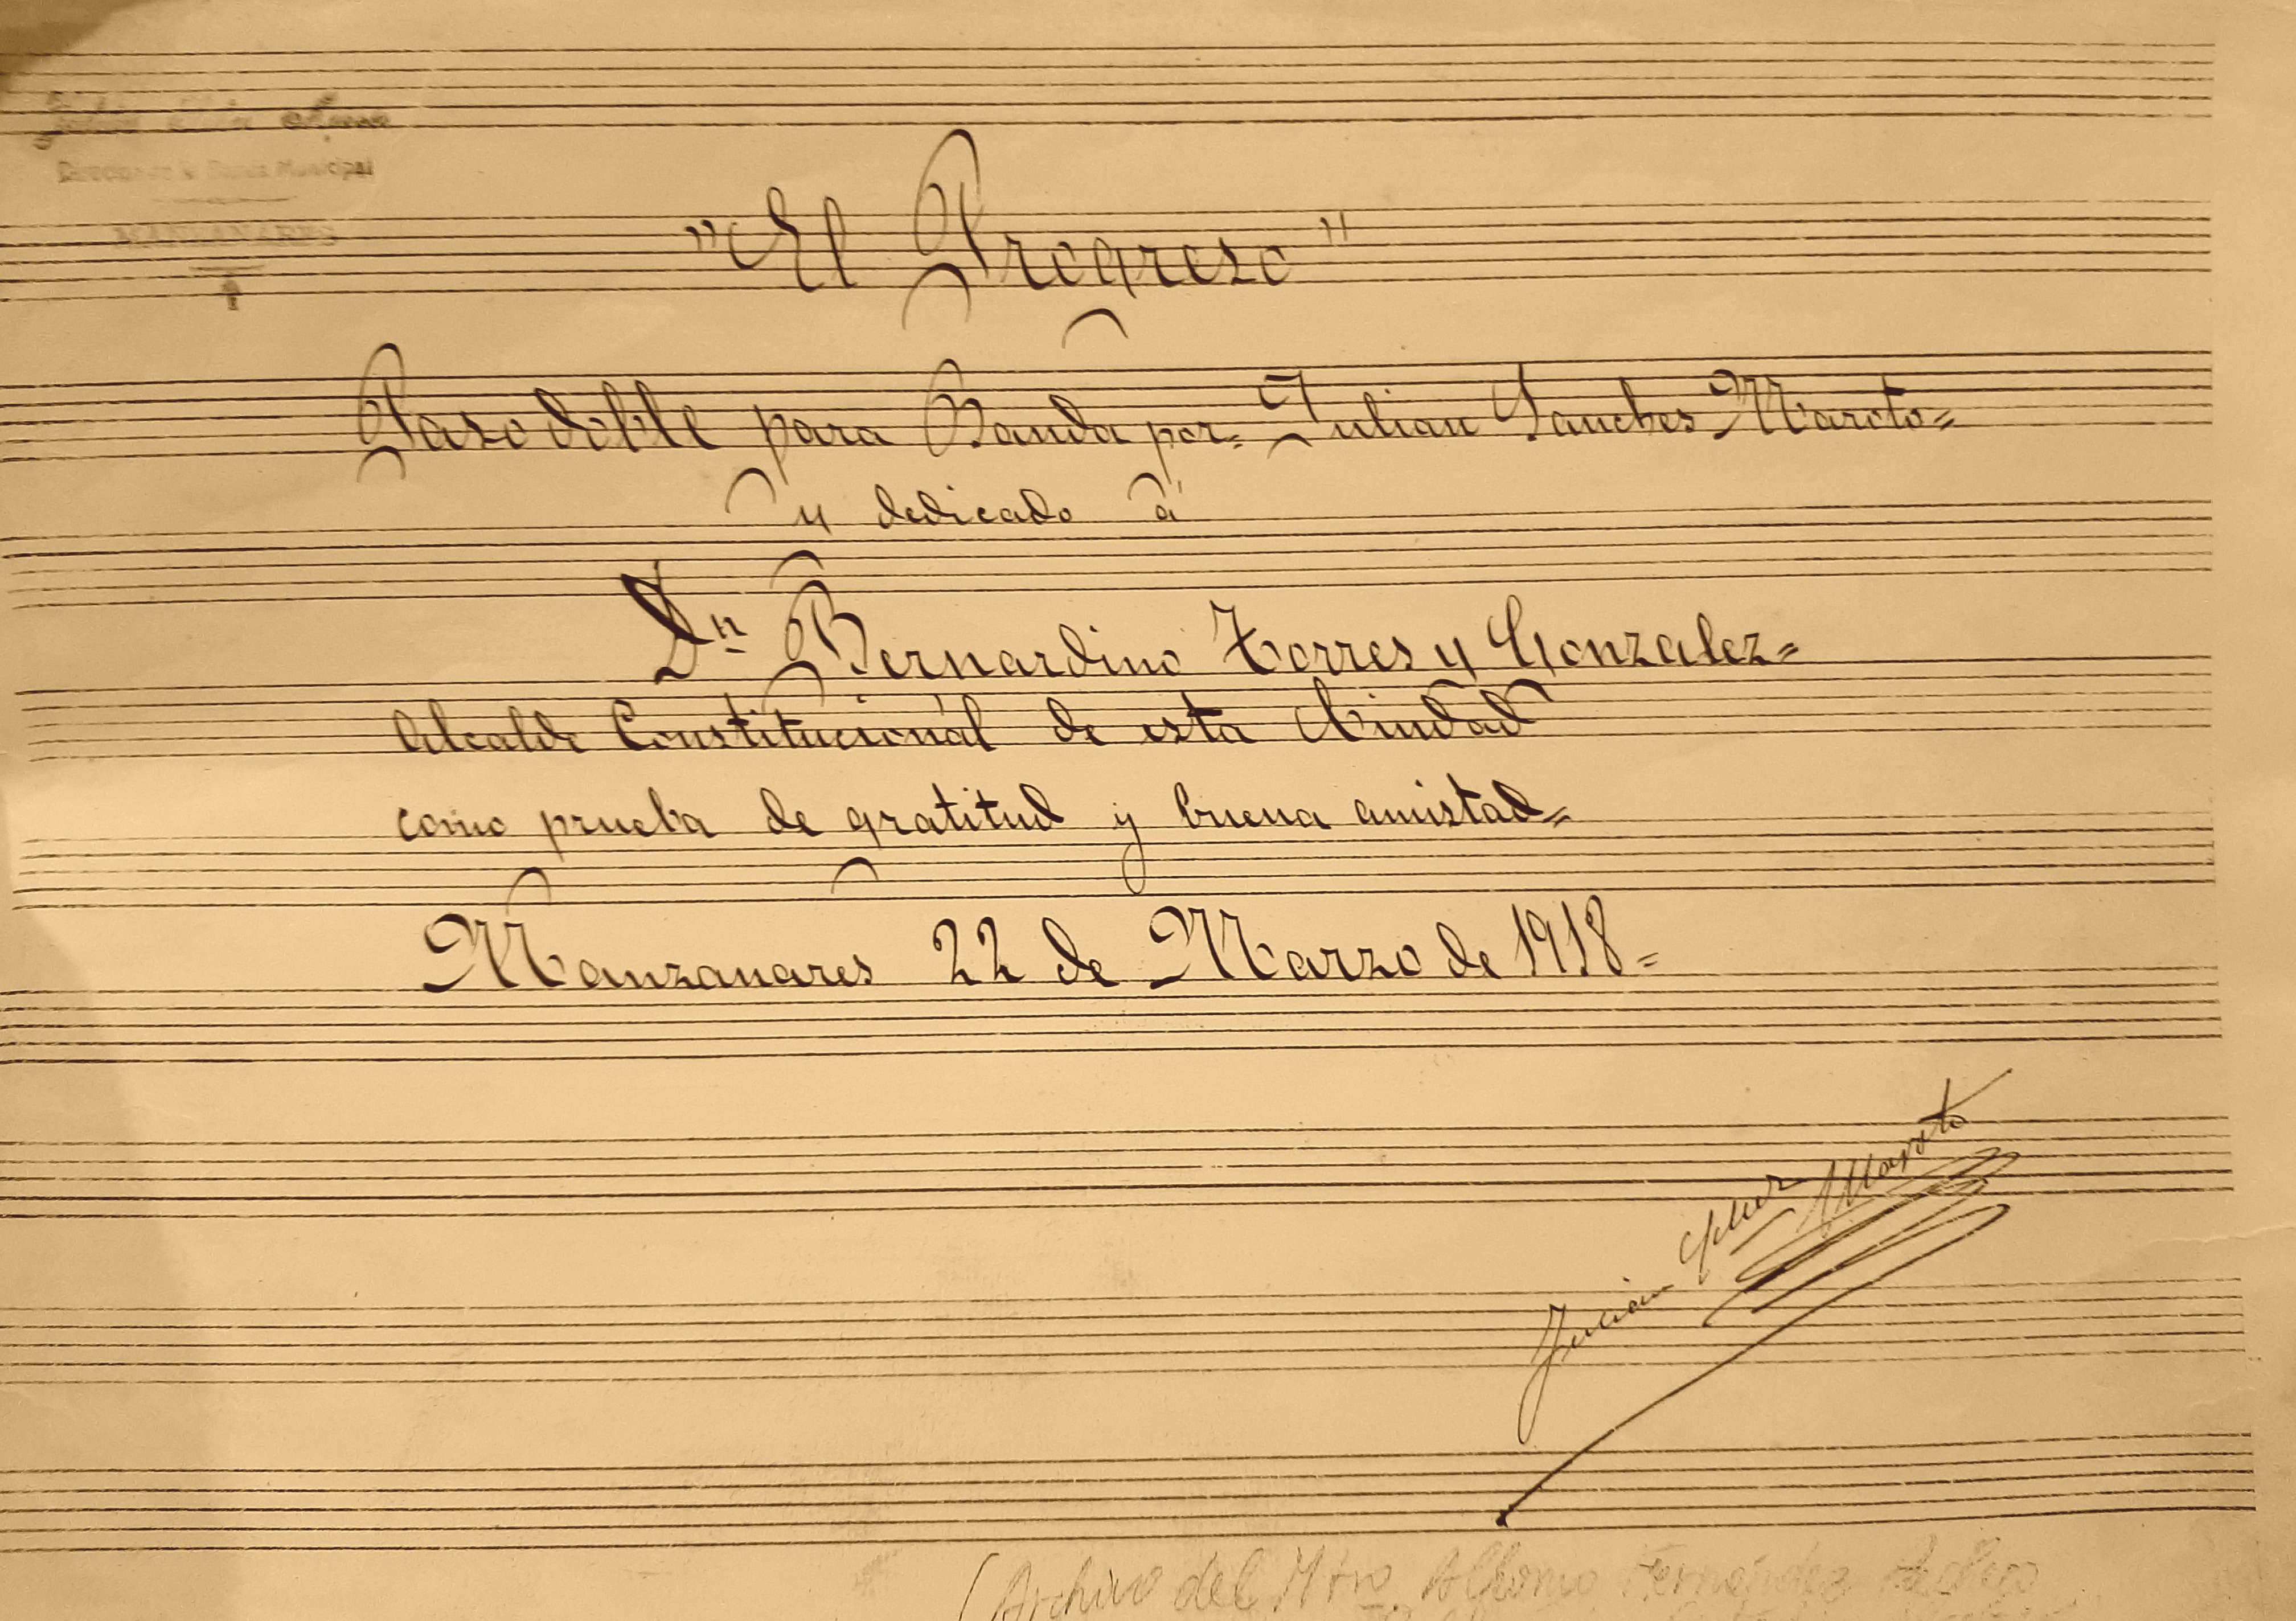 Director de la Banda Municipal
MANZANARES
"El Progreso"
Pasodoble para Banda por= Julian Sanches Maroto=
y dedicado á
Dn Bernardino Torres y Gonzalez=
Alcalde Constitucionál de esta Ciudad
como prueba de gratitud y buena amistad=
Manzanares 22 de Marzo de 1918=
Julián Schez Maroto
(Archivo del Mtro. Alfonso Fernández